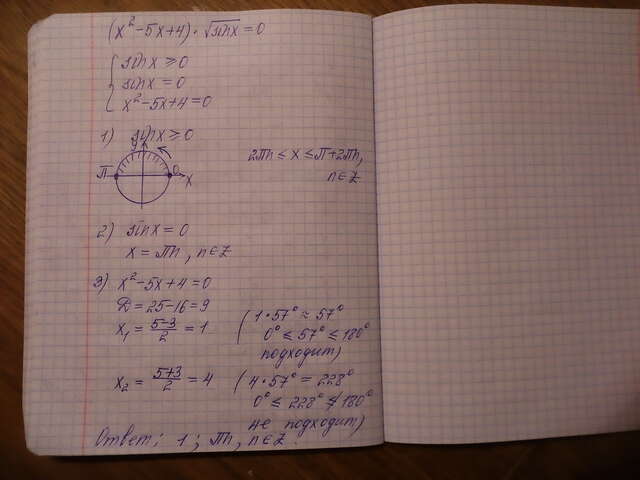 (x² - 5x + 4) · √sinx = 0
sinx ≥ 0
sinx = 0
x² - 5x + 4 = 0
1) sinx ≥ 0
y
π 0 x
2πn ≤ x ≤ π + 2πn,
n ∈ Z
2) sinx = 0
x = πn, n ∈ Z
3) x² - 5x + 4 = 0
D = 25 - 16 = 9
x₁ = (5-3)/2 = 1 (1 · 57° ≈ 57°
0° ≤ 57° ≤ 180°
подходит)
x₂ = (5+3)/2 = 4 (4 · 57° = 228°
0° ≤ 228° ≰ 180°
не подходит)
Ответ: 1; πn, n ∈ Z.